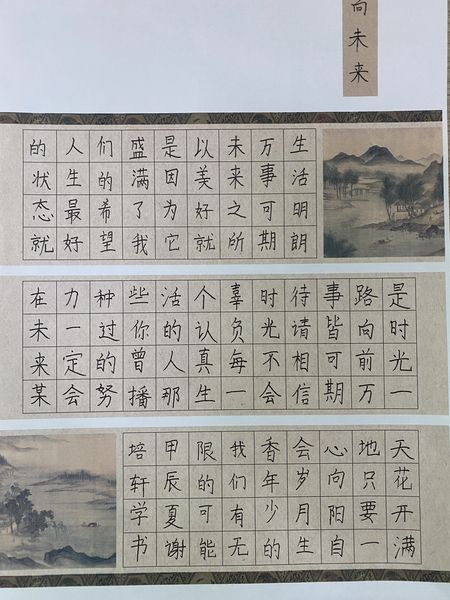 向未来
生活明朗
万事可期
未来之所
以美好就
是因为它
盛满了我
们的希望
人生最好
的状态就
是时光一
路向前万
事皆可期
待请相信
时光不会
辜负每一
个认真生
活的人那
些你曾播
种过的努
力一定会
在未来某
天花开满
地只要一
心向阳自
会岁月生
香年少的
我们有无
限的可能
甲辰夏谢
培轩学书